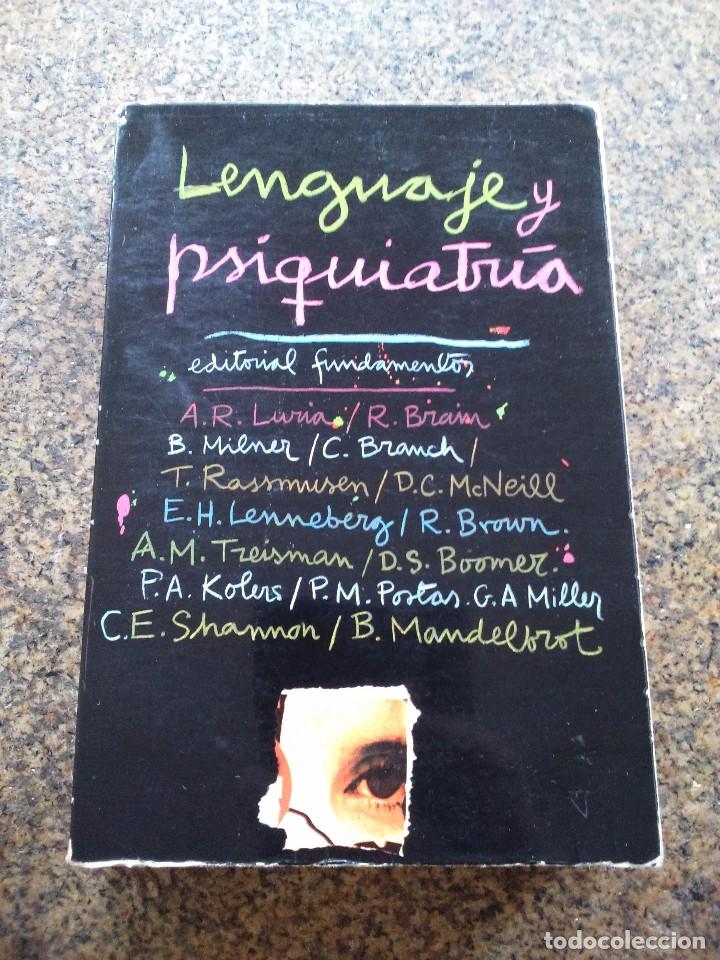 Lenguaje y
psiquiatría
editorial fundamentos
A.R. Luria / R. Brain
B. Milner / C. Branch /
T. Rassmusen / D.C. McNeill
E.H. Lenneberg / R. Brown.
A.M. Treisman / D.S. Boomer.
P.A. Kolers / P.M. Postas. G.A Miller
C.E. Shannon / B. Mandelbrot
todocoleccion